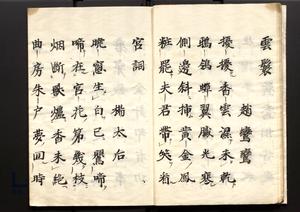 雲鬟
趙鸞鸞
擾擾香雲濕未乾
蟬翼膩光寒
側邊斜插黃金鳳
粧罷夫君帶笑看
宮詞
楊太后
曉窓生白已鶯啼
啼在宮花第幾枝
烟断獸爐香未絶
曲房朱戶夢回時